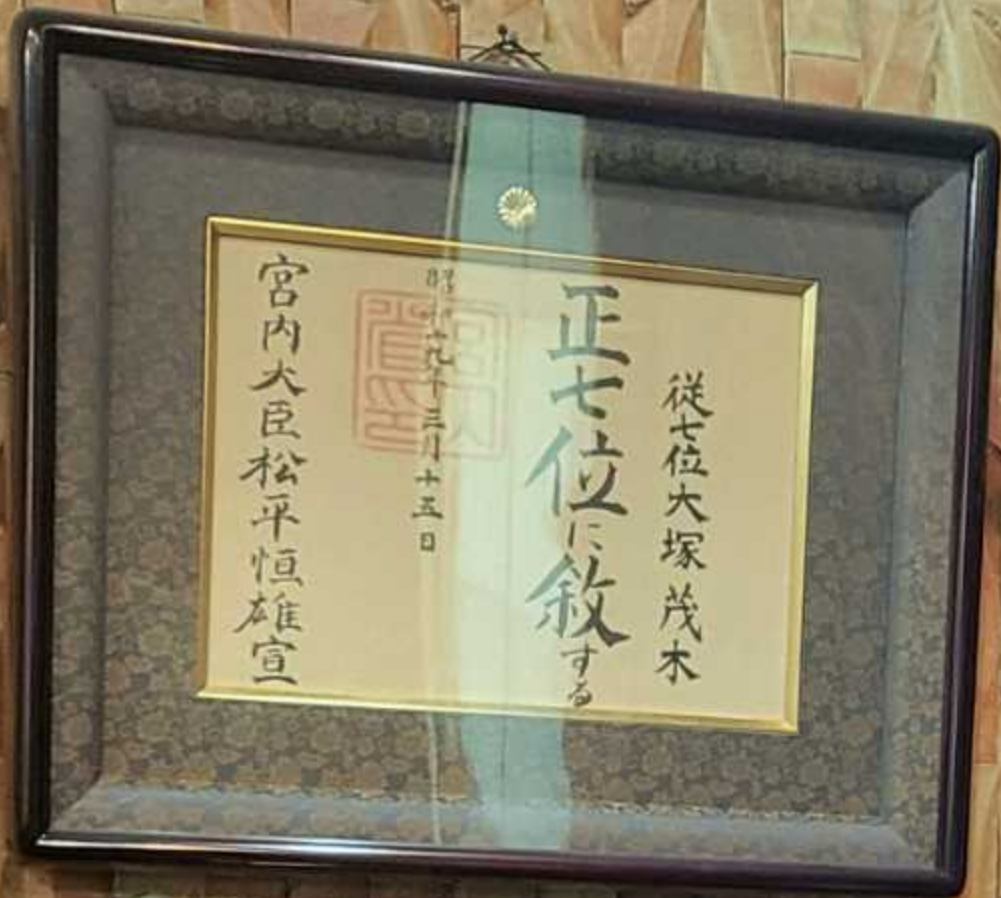 従七位大塚茂木
正七位に敘する
昭和十九年三月十五日
宮内大臣松平恒雄宣